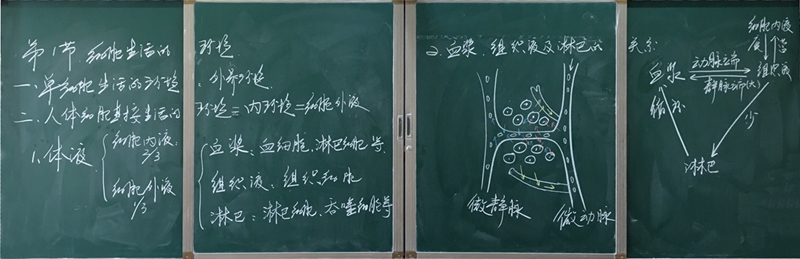 第1节 细胞生活的环境
一、单细胞生活的环境：外界环境
二、人体细胞直接生活的环境=内环境=细胞外液
1、体液
细胞内液：2/3
细胞外液 1/3
血浆：血细胞、淋巴细胞等
组织液：组织细胞
淋巴：淋巴细胞、吞噬细胞等
2、血浆、组织液及淋巴的关系
微静脉
微动脉
细胞内液
血浆
动脉端
静脉端(大)
组织液
少
淋巴